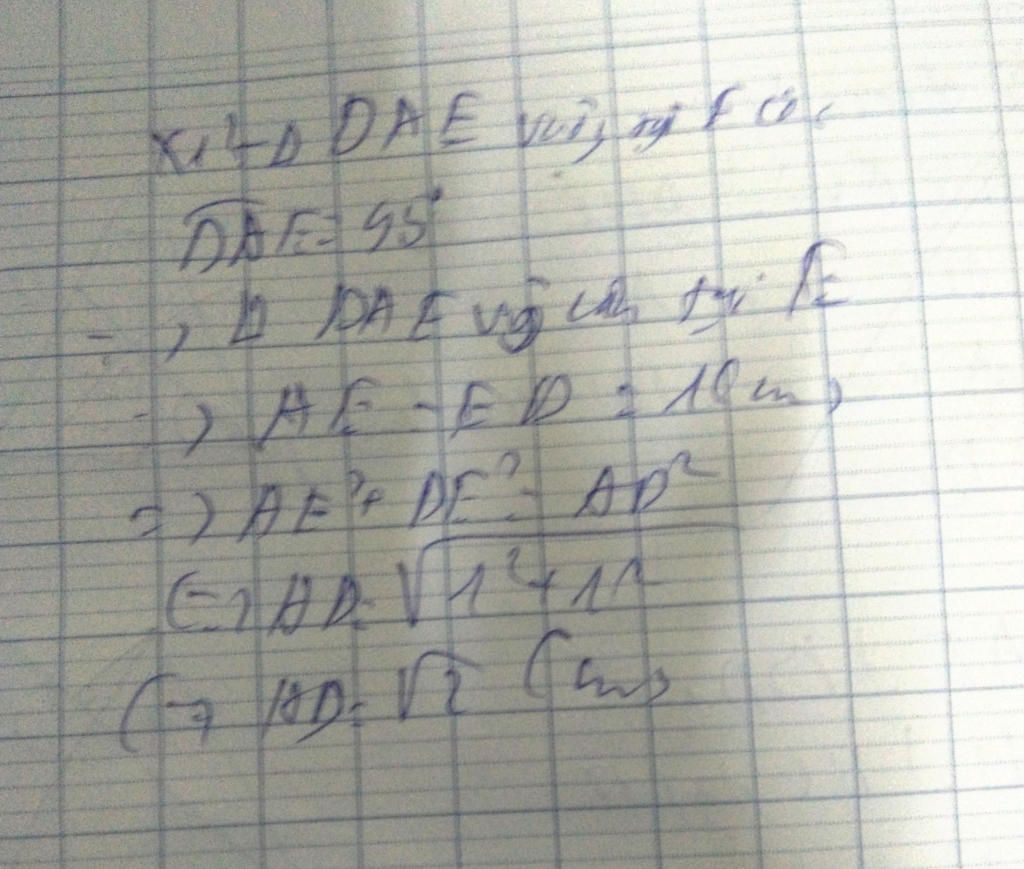 Xét Δ DAE vuôg tại E có:
DAE = 45°
=> Δ DAE vuôg cân tại E
=> AE = ED = 1(cm)
=> AE² + DE² = AD²
(=> AD = √1² + 1²
(=> AD = √2 (cm)